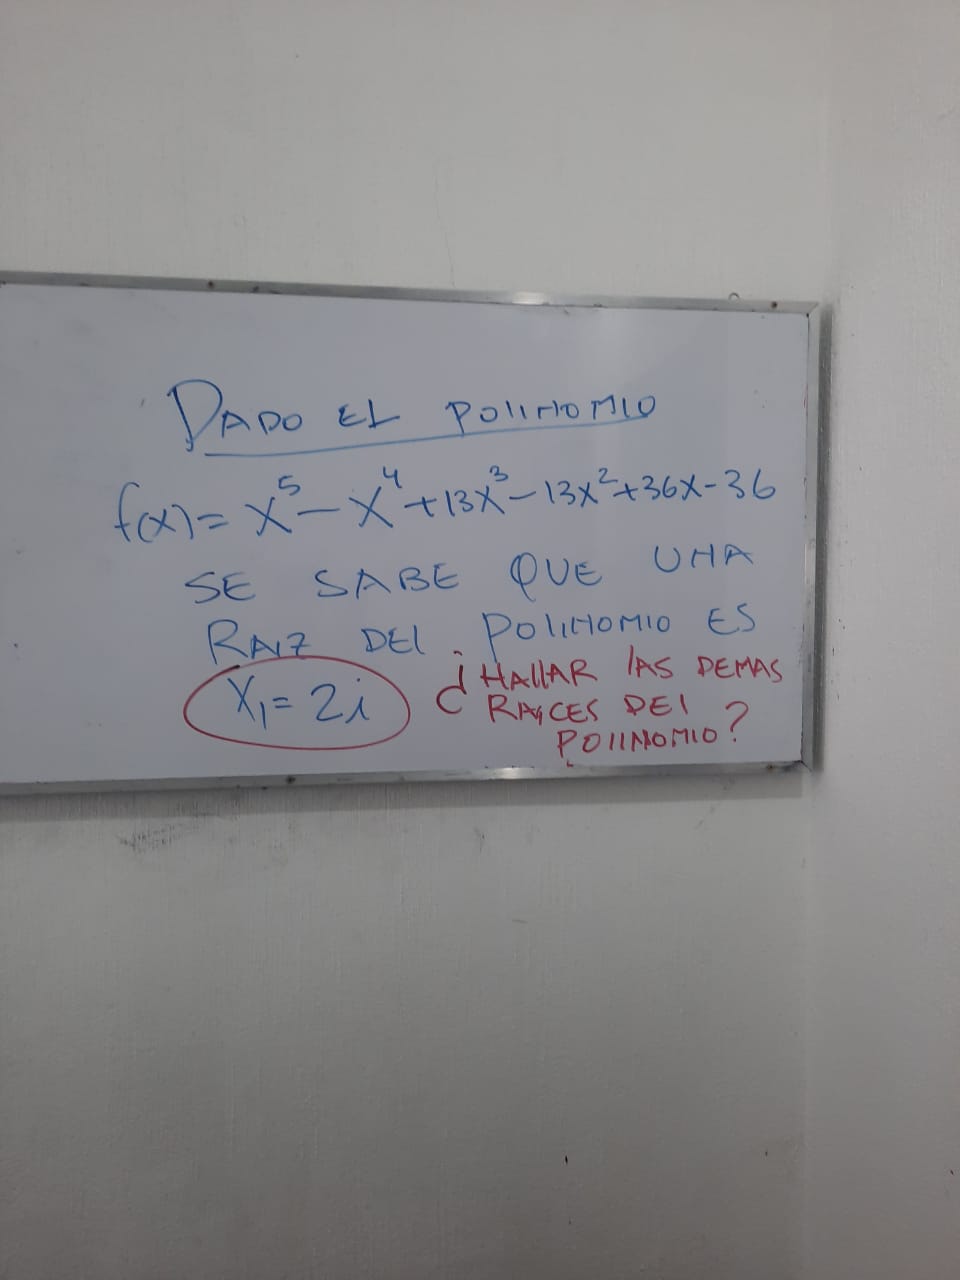 DADO EL POLINOMIO
f(x) = x⁵ - x⁴ + 13x³ - 13x² + 36x - 36
SE SABE QUE UNA
RAIZ DEL POLINOMIO ES
x₁ = 2i
¿HALLAR LAS DEMAS
RAICES DEL
POLINOMIO?